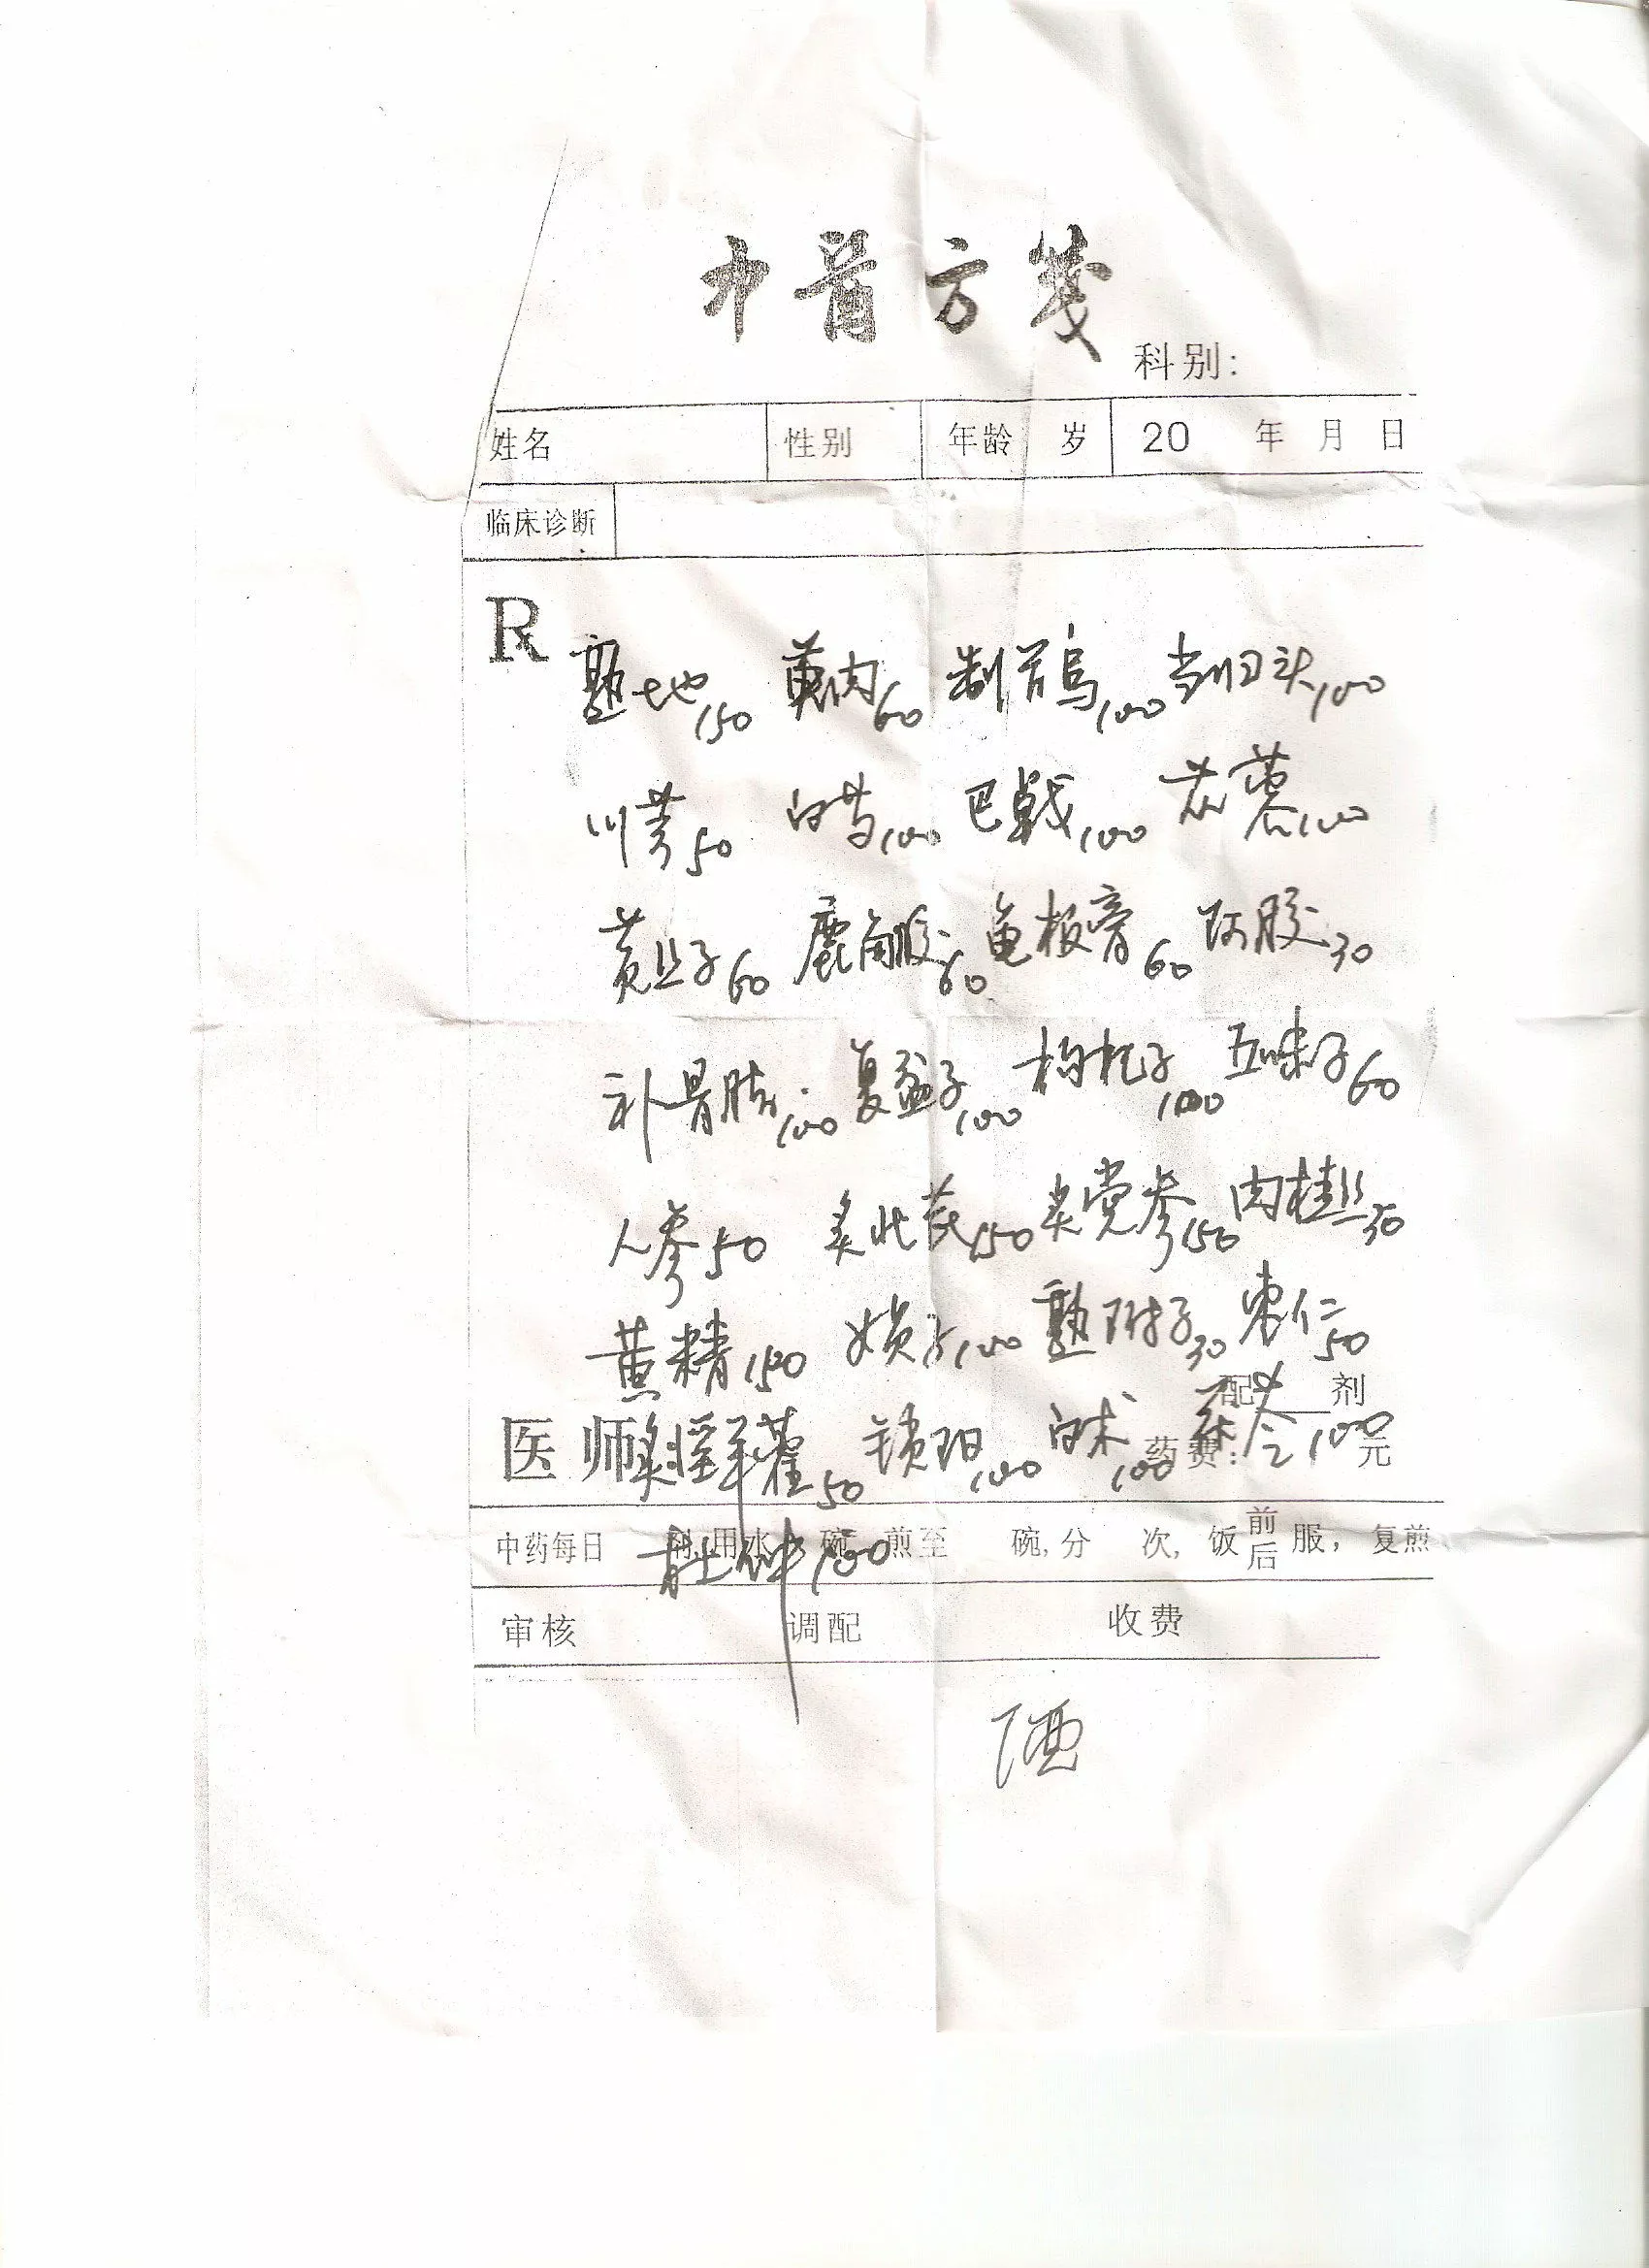 中醫方笺
科别:
姓名 性别 年龄 岁 20 年 月 日
临床诊断
R
熟地150 萸肉60 制首乌100 当归头100
川芎50 白芍100 巴戟100 苁蓉100
黄丝子60 鹿角胶60 龟板膏60 阿胶30
补骨脂100 复盆子100 枸杞子100 五味子60
人参50 炙北芪150 炙党参150 肉桂丝30
黄精150 女贞子100 熟附子30 枣仁50
配 剂
医师 炙淫羊藿50 锁阳100 白术100 茯苓100
药费: 元
中药每日 剂,用水 碗,煎至 碗,分 次, 饭前后服, 复煎
杜仲100
审核 调配 收费